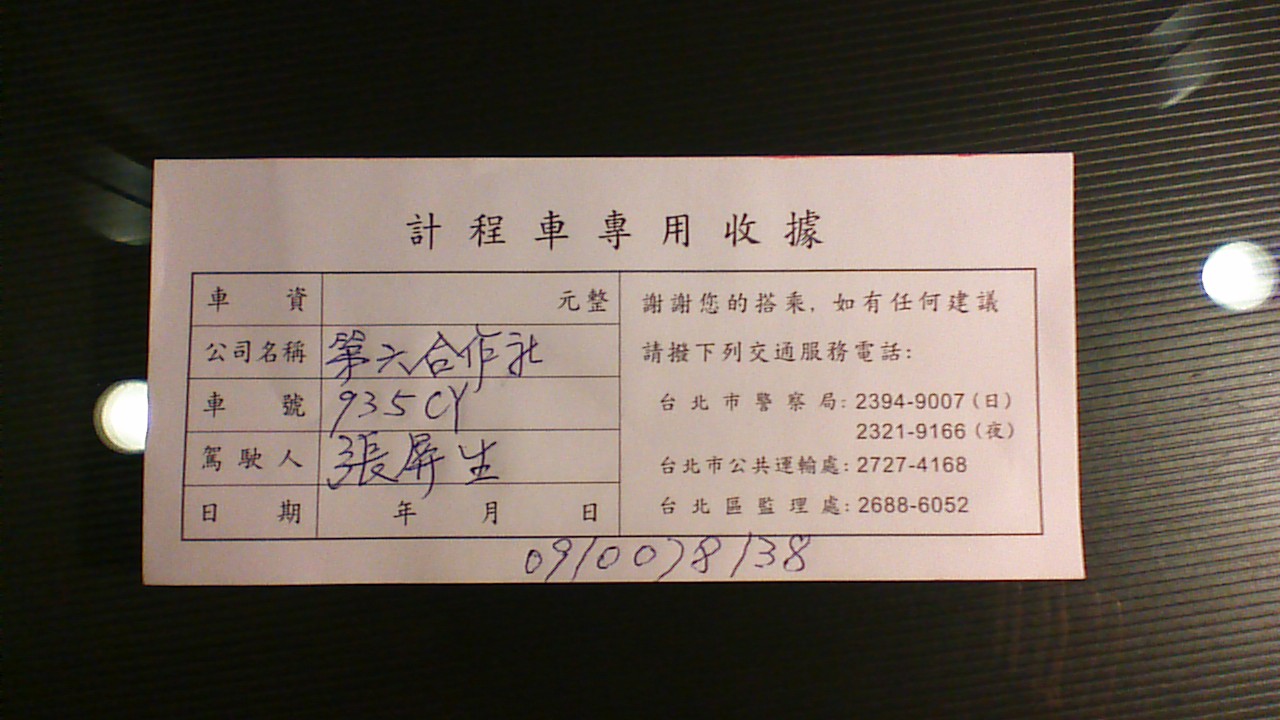 計程車專用收據
車資 元整
公司名稱 第六合作社
車號 935CY
駕駛人 張屏生
日期 年 月 日
謝謝您的搭乘,如有任何建議
請撥下列交通服務電話:
台北市警察局: 2394-9007(日)
2321-9166(夜)
台北市公共運輸處: 2727-4168
台北區監理處: 2688-6052
0910078138